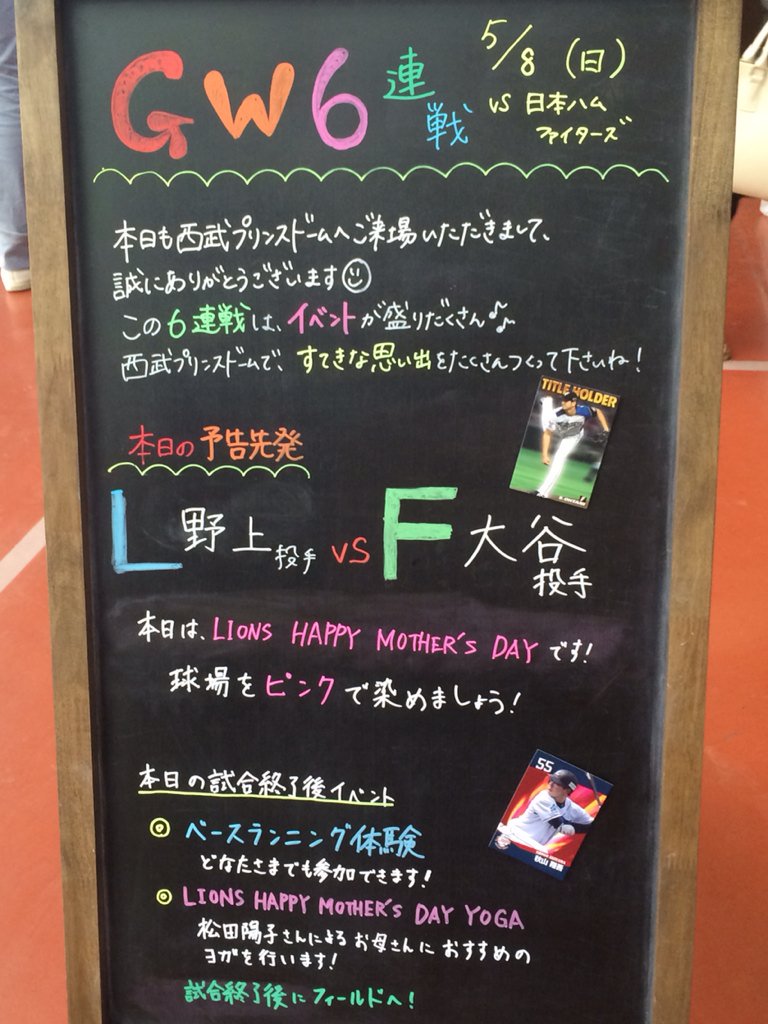 GW6連戦
5/8(日)
vs 日本ハム
ファイターズ
本日も西武プリンスドームへご来場いただきまして、
誠にありがとうございます
この6連戦は、イベントが盛りだくさん♪♪
西武プリンスドームで、すてきな思い出をたくさんつくって下さいね!
TITLE HOLDER
S.OHTANI
本日の予告先発
L 野上投手 vs F 大谷投手
本日は、LIONS HAPPY MOTHER'S DAYです!
球場をピンクで染めましょう!
55
秋山 翔吾
本日の試合終了後イベント
◎ ベースランニング体験
どなたさまでも参加できます!
◎ LIONS HAPPY MOTHER'S DAY YOGA
松田陽子さんによるお母さんにおすすめの
ヨガを行います!
試合終了後にフィールドへ!